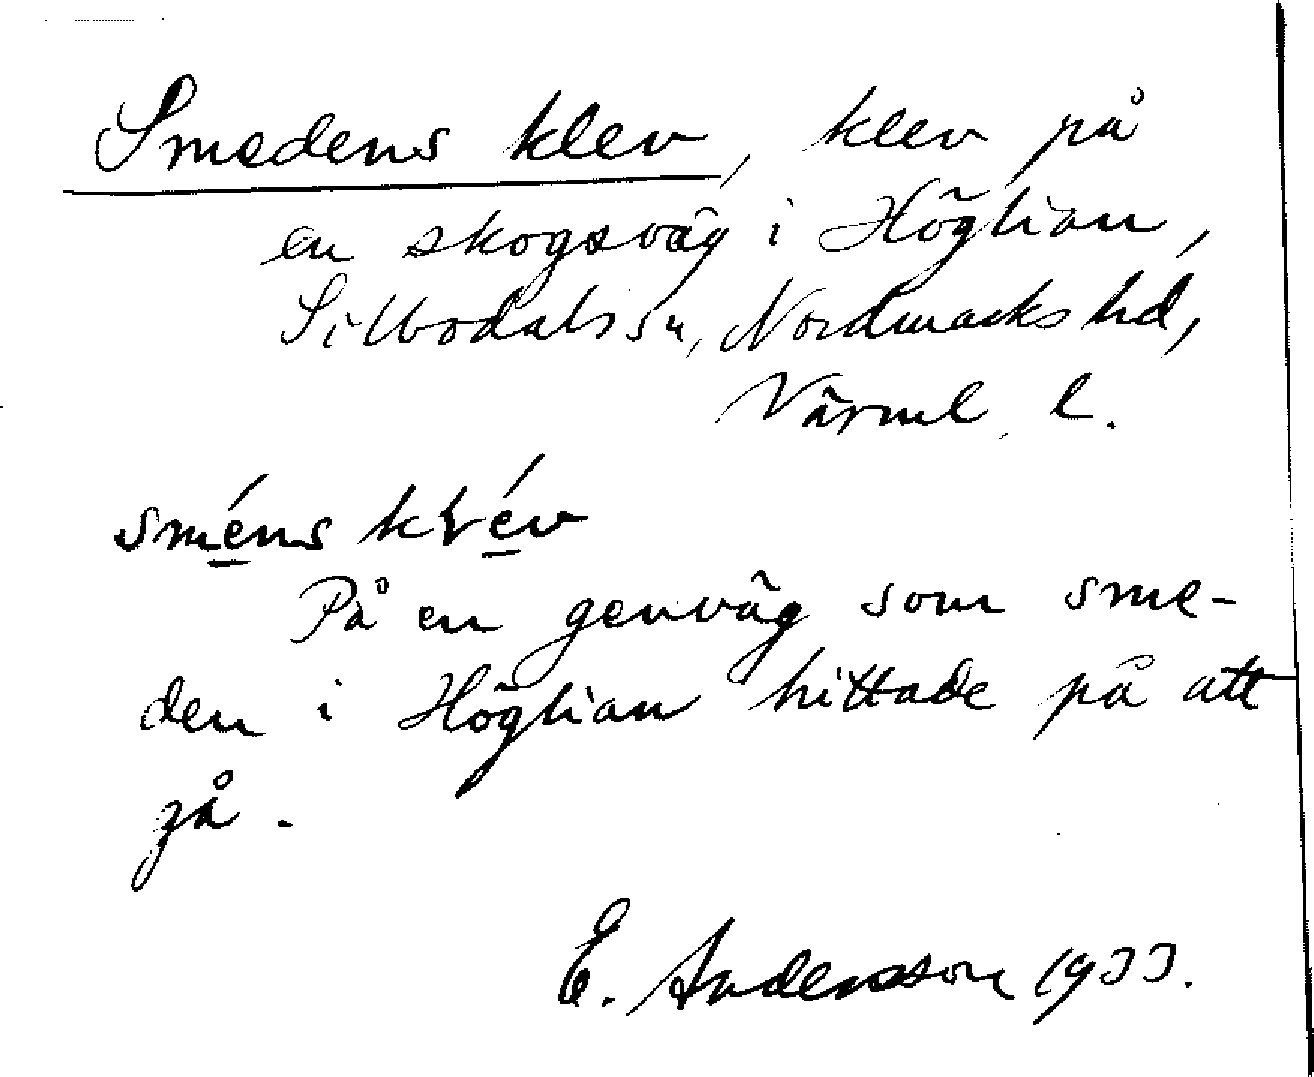 Smedens klev, klev på
en skogsväg i Höglian,
Silbodals sn, Nordmarks hd,
Värml. l.
sméns klév
På en genväg som sme-
den i Höglian hittade på att
gå.
E. Andersson 1933.